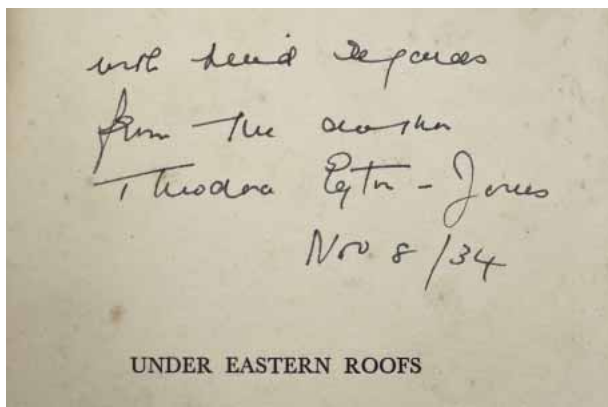 with kind regards
from the author
Theodora Eyton-Jones
Nov 8/34
UNDER EASTERN ROOFS